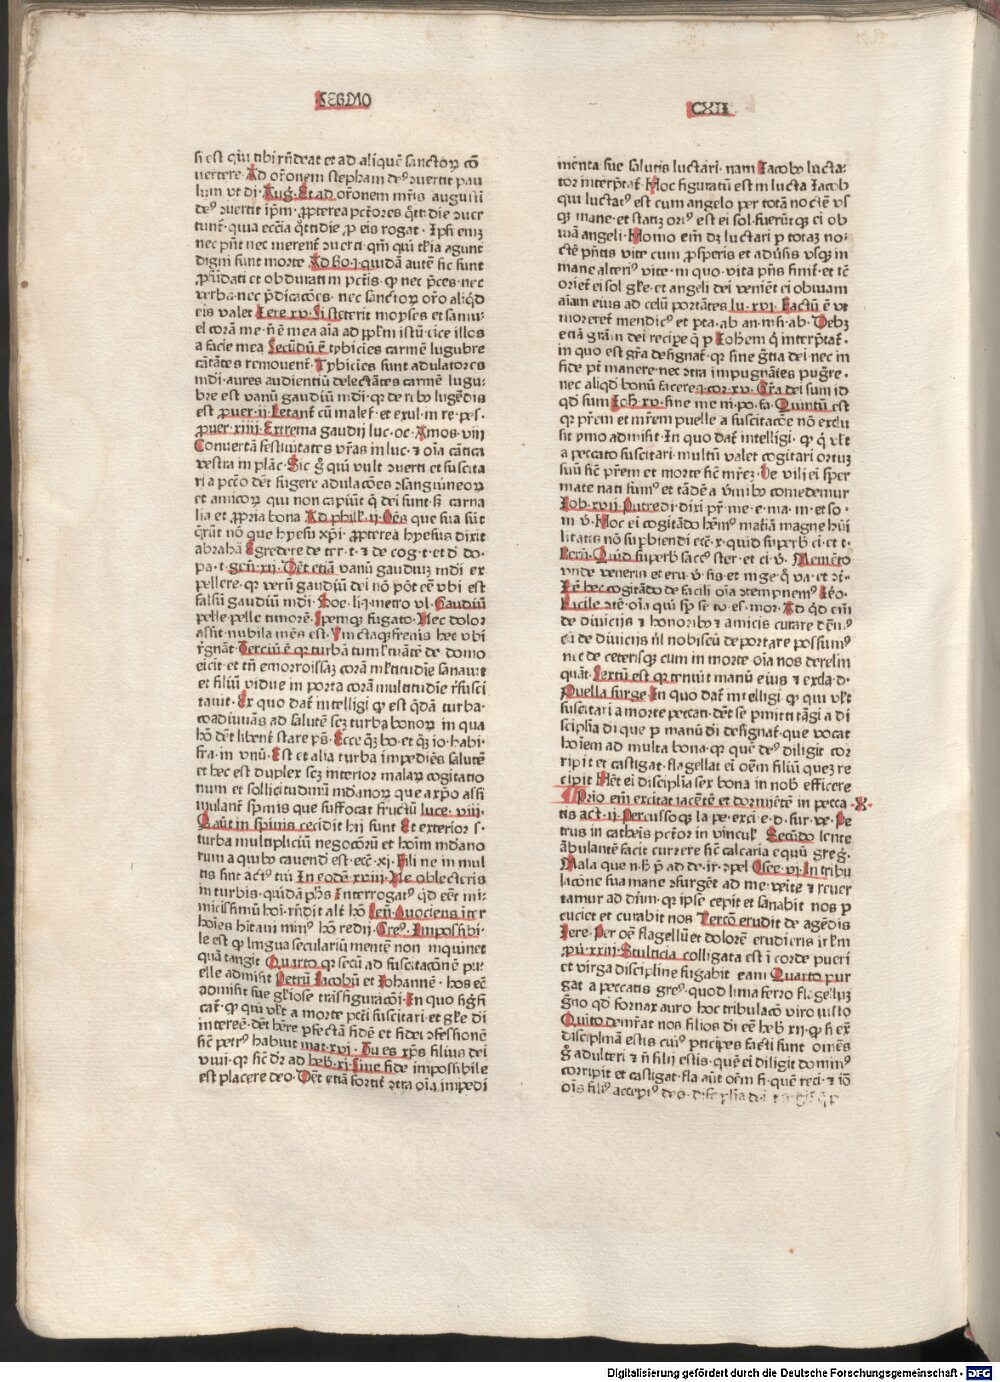 SERMO
CXII
si est q̄m tibi rn̄deat et ad aliquē sanctoꝝ cō
uertere. Ad orōnem stephani deꝰ ↄuertit pau
lum vt di. Aug. Et ad orōnem mr̄is augusti
deꝰ ↄuertit ip̄m. ꝓpterea pctōres q̄tti die ↄuer
tunt̄. quia eccīa q̄tidie ꝓ eis rogat. Ipsi eniꝫ
nec pn̄t nec merent̄ ↄuerti. qm̄ qui talia agunt
digni sunt morte Ad Ro. i. quidā autē sic sunt
ꝓfūdati et obdurati in pctīs. ꝙ nec p̄ces. nec
verba. nec p̄dicacōes. nec sanctoꝝ or̄o aliq̄d
eis valet Iere. xv. Si steterit moyses et samu-
el corā me. nō ē mea aīa ad ppl̄m istū. eice illos
a facie mea Secūdū ē tybicies carmē lugubre
cātātes remouent̄. Tybicies sunt adulatores
mūdi. aures audientiū delectātes carmē lugu-
bre est vanū gaudiū mūdi. qꝛ de rebꝰ lugēdis
est ꝓuer. ii. Letant̄ cū malef. et exul. in re. pes.
ꝓuer. xiiii. Extrema gaudij luc. oc. Amos. viii
Conuertā festiuitates vr̄as in luc. ⁊ oīa cātica
vestra in plāc. Sic g̊ qui vult ↄuerti et suscita
ri a pctō det fugere adulacōes ↄsanguineoꝝ
et amicoꝝ qui non capiūt q̄ dei sunt. sꝫ carna
lia et ꝓpria bona Ad phill. ii. Oēs que sua sūt
q̄rūt nō que ihesu xp̄i. ꝓpterea ihesus dixit
abrahā Egredere de ter. t. ⁊ de cog. t. et d do.
pa. t. gen. xii. Det etiā vanū gaudiuꝫ mūdi ex
pellere. qꝛ verū gaudiū dei nō pōt eē vbi est
falsū gaudiū mūdi. Boe. li. i. metro vl. Gaudiū
pelle pelle timorē. Spemqꝫ fugato. Nec dolor
assit. nubila mēs est. Vinctaqꝫ frenis hec vbi
rēgnāt. Terciū ē qꝛ turbā tumltuātē de domo
eicit. et tn̄ emorroissaꝫ corā multitudīe sanauit
et filiū vidue in porta corā multitudīe rēsusci
tauit. Ex quo dat̄ intelligi ꝙ est q̄dā turba.
coadiuuās ad salutē scꝫ turba bonoꝝ in qua
hō det libent̄ stare ps̄. Ecce q̄ꝫ bo. et qꝫ io. habi.
fra. in vnū. Est et alia turba impediēs salutē
et hec est duplex scꝫ interior malaꝝ cogitatio
num et sollicitudinū mūdanoꝝ que a xp̄o assi
mulant̄ spinis que suffocat fructū luce. viii.
Qd̄ aūt in spinis cecidit hij sunt Et exterior s.
turba multipliciū negocioꝝ et hoīm mūdano
rum a quibꝰ cauend est. ecc̄. xi. Fili ne in mul
tis sint actꝰ tui In eodē. xviii. Ne oblecteris
in turbis. quidā phs̄ Interrogatꝰ qd eēt ini-
micissimū hoī. rn̄dit alt̄ hō Sen̄. Quociens iter
hoīes hitaui minꝰ hō redij. Greꝰ. Impossibi-
le est ꝙ lingua seculariū mentē non inquinet
quā tangit Quarto qꝛ secū ad suscitacōnē pu-
elle admisit Petrū Iacobū et Iohannē. hos eē
admisit sue gl̄iose trāsfiguracōi. In quo sig̅fi
cat̄. ꝙ qui vlt̄ a morte pcti suscitari. et gl̄e di
interee. det bēre pfectā fidē et fidei ↄfessionē
sic petrꝰ habuit mat. xvi. Tu es xp̄s filius dei
viui. qꝛ sic dr̄ ad heb. xi. Sine fide impossibile
est placere deo. Det etiā fortit̄ ↄtra oīa impedi
menta sue salutis luctari. nam Iacobꝰ lucta-
tor interp̄tat̄. Hoc figuratū est in lucta Iacob
qui luctatꝰ est cum angelo per totā noctē vs
qꝫ mane. et statiꝫ ortꝰ est ei sol. fuerūtqꝫ ei ob
uiā angeli. Homo em̄ dꝫ luctari p totaꝫ no-
ctē p̄ntis vite cum ꝓsperis et aduersis vsqꝫ in
mane alteriꝰ vite. in quo. vita p̄ns finit̄. et tc̄
oriet̄ ei sol gl̄e. et angeli dei veniēt ei obuiam
aīam eius ad celū portātes lu. xvi. Factū ē vt
moreret̄ mendicꝰ et pta. ab an. in si. ab. Debꝫ
etiā gr̄am dei recipe q̄ p Ioh̄em q̄ interp̄tat̄.
in quo est gr̄a designat̄. qꝛ sine gr̄tia dei nec in
fide pt̄ manere. nec ↄtra impugnātes pug̅re.
nec aliqd bonū facere. i. cor. xv. Gr̄a dei sum id
qd sum Ioh. xv. sine me ni. po. fa. Quintū est
qꝛ pr̄em et mr̄em puelle a suscitacōe nō exclu
sit ymo admisit. In quo dat̄ intelligi. ꝙ q̄ vlt̄
a peccato suscitari. multū valet cogitari ortuꝫ
suū sic pr̄em et morte sic mr̄eꝫ. De vili ei sper
mate nati sumꝰ et tādē a v̄mibꝰ comedemur
Iob. xvii. Putredi. dixi pr̄ me. e. ma. m. et so.
m v̄. Hoc ei cogitādo hēmꝰ matiā magne hūi
litatis nō supbiendi ecc̄. x. quid superb ci. et t.
Bern̄. Quid superb sacc ster. et ci. v̄. Memēto
vnde veneris et eru. v̄. sis et in ge. q̄ va. et rt̄.
Itē hec cogitādo de facili oīa ↄtempnem Iero.
Facile ↄtē. oīa qui sp̄ se to. es. mor. Ad qd em̄
de diuicijs ⁊ honoribꝰ ⁊ amicis curare debemꝰ
cū de diuicijs nl̄ nobiscū deportare possumꝰ
nec de ceterisqꝫ cum in morte oīa nos derelin
quāt. Sextū est qꝛ tenuit manū eius ⁊ exda. d.
Puella surge. In quo dat̄ intelligi ꝙ qui vlt̄
suscitari a morte peccati. det se pmitti tāgi a di
sciplīa di que p manū di designat̄. que vocat
hoīem ad multa bona. qꝛ quē deꝰ diligit cor
ripit et castigat. flagellat ei oēm filiū queꝫ re
cipit Habet ei disciplīa sex bona in nob efficere
Prīo em̄ excitat iacētē et dormiētē in pecca
tis act. ii. Percussoqꝫ la. pe. exci. e. d. sur. ve. Pe
trus in catheis petror in vinculꝭ. Secūdo lente
ābulantē facit currere sic calcaria equū greg.
Mala que n. h̄. p̄. ad de. ir. ↄpel Osee. vi. In tribu
lacōne sua mane ↄsurgēt ad me. vēite ⁊ reuer
tamur ad dn̄m. qꝛ ipse cepit et sanabit nos p
cuciet et curabit nos Tercō erudit de agēdis
Iere. Per oē flagellū et dolorē erudieris irl̄m
ꝓu. xxiii. Stulticia colligata est i corde pueri
et virga discipline fugabit eam Quarto pur
gat a peccatis greꝰ. quod lima ferro flagelluꝫ
g̅no qd fornax auro hoc tribulacō viro iusto
Quito demr̄at nos filios di eē heb xij. ꝙ si ex̄
disciplinā estis cuiꝰ pticipes facti sunt omēs
g̊ adulteri ⁊ nō filij estis. quē ei diligit dominꝰ
corripit et castigat. fla aūt oēm fi. quē reci. ⁊ iō
oīs filiꝰ acceptꝰ
X.
Digitalisierung gefördert durch die Deutsche Forschungsgemeinschaft - DFG